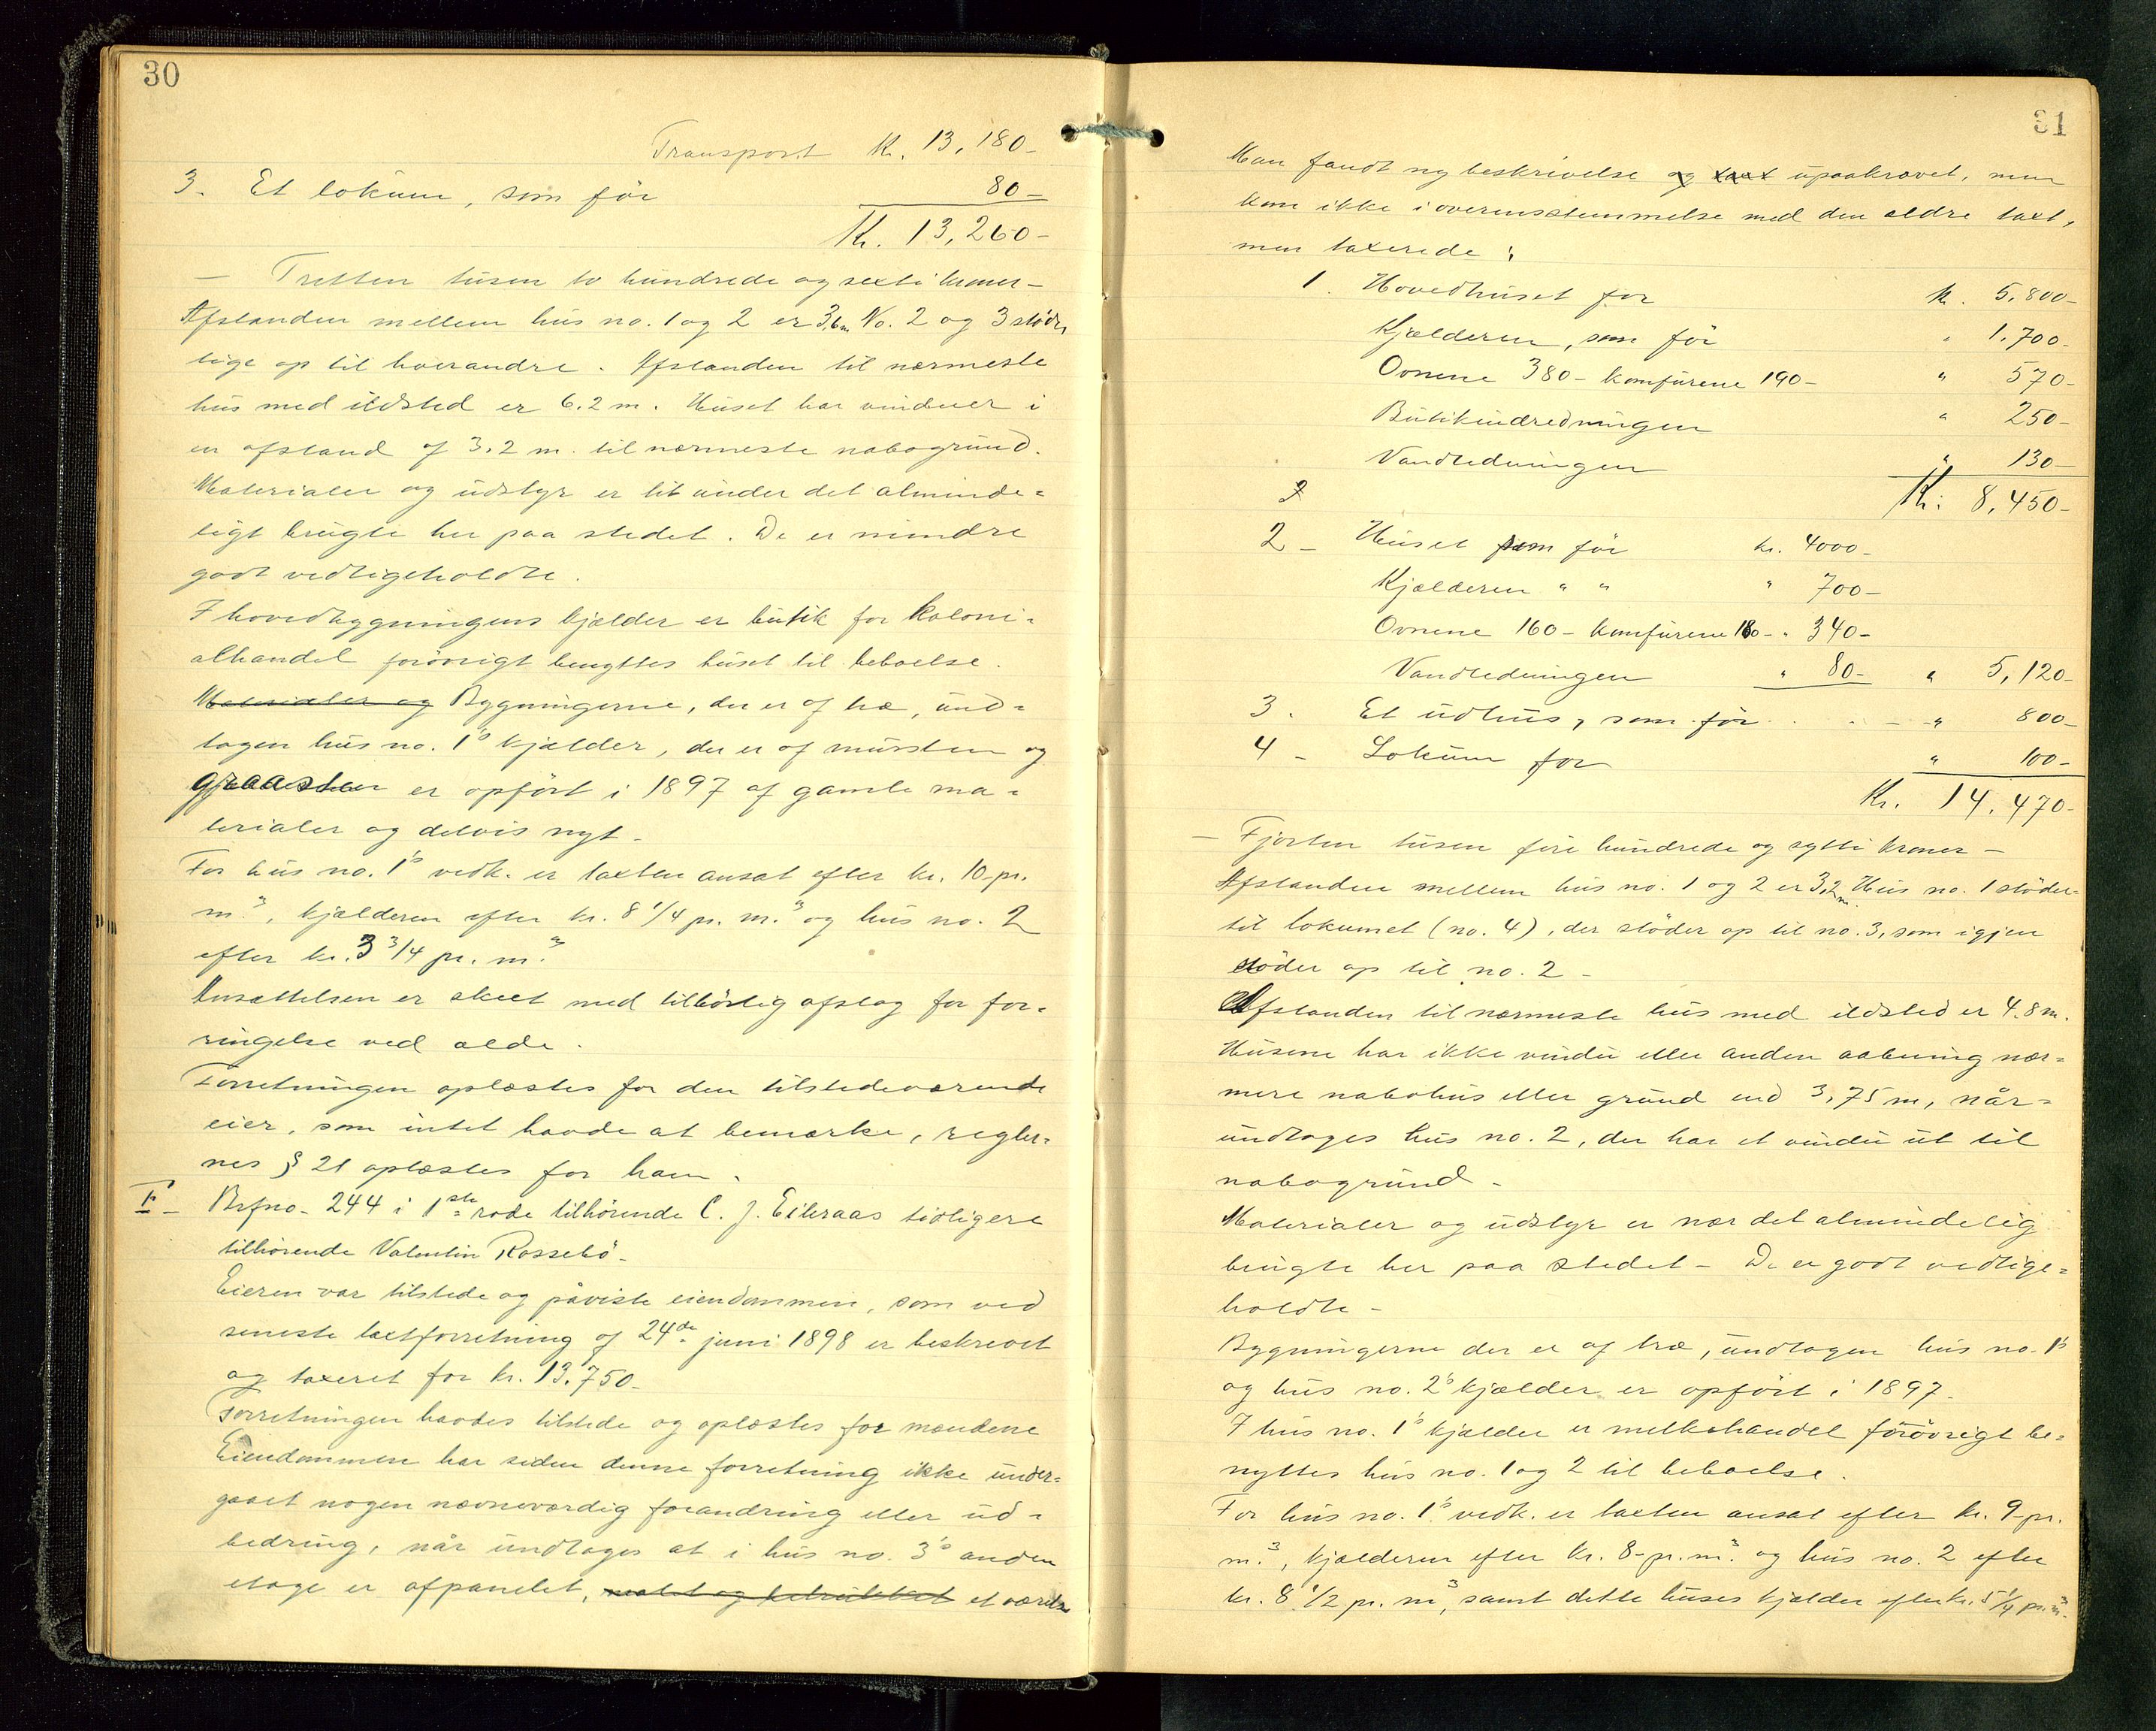 30
Transport Kr. 13,180-
3. Et lokum, som för 80-
Kr. 13,260-
- Tretten tusen to hundrede og sexti kroner -
Afstanden mellem hus no. 1 og 2 er 3,6m No. 2 og 3 stöder
lige op til hverandre. Afstanden til nærmeste
hus med ildsted er 6.2 m. Huset har vinduer i
en afstand af 3.2 m. til nærmeste nabogrund.
Materialer og udstyr er lit under det alminde=
ligt brugte her paa stedet. De er mindre
godt vedligeholdte.
I hovedbygningens kjælder er butik for koloni=
alhandel forövrigt benyttes huset til beboelse.
Materialer og Bygningerne, der er af træ, und=
tagen hus no. 1's kjælder, der er af mursten og
graasten er opfört i 1897 af gamle ma=
terialer og delvis nyt-
For hus no. 1's vedk. er taxten ansat efter kr. 10- pr.
m.³, kjælderen efter kr. 8 1/4 pr. m.³ og hus no. 2
efter kr. 3 3/4 pr. m.³
Ansættelsen er skeet med tilbörlig afslag for for=
ringelse ved ælde.
Forretningen oplæstes for den tilstedeværende
eier, som intet havde at bemærke, regler=
nes § 21 oplæstes for ham.
F- Brfno. 244 i 1ste rode tilhörende C. J. Eileraas tidligere
tilhörende Valentin Rossebö-
Eieren var tilstede og påviste eiendommen, som ved
seneste taxtforretning af 24de juni 1898 er beskrevet
og taxeret for kr. 13.750-
Forretningen havdes tilstede og oplæstes for mændene
Eiendommen har siden denne forretning ikke under=
gaaet nogen nævneværdig forandring eller ud=
bedring, når undtages at i hus no. 3's anden
etage er afpanelet, malet og betrukket et værelse
31
Man fandt ny beskrivelse og taxt upaakrævet, men
kom ikke i overensstemmelse med den ældre taxt,
men taxerede:
1. Hovedhuset for kr. 5,800-
Kjælderen, som för " 1.700-
Ovnene 380- komfurene 190- " 570-
Butikindredningen " 250-
Vandledningen " 130-
2 Kr. 8,450-
2- Huset som för kr. 4000-
Kjælderen " " " 700-
Ovnene 160- komfurene 180- " 340-
Vandledningen " 80- " 5,120-
3. Et udhus, som för " 800-
4- Lokum for " 100-
Kr. 14.470-
- Fjorten tusen fire hundrede og sytti kroner -
Afstanden mellem hus no. 1 og 2 er 3,2m Hus no. 1 stöder
til lokumet (no. 4), der stöder op til no. 3, som igjen
stöder op til no. 2-
Afstanden til nærmeste hus med ildsted er 4.8m.
Husene har ikke vindu eller anden aabning nær=
mere nabohus eller grund end 3,75 m, når=
undtages hus no. 2, der har et vindu ut til
nabogrund-
Materialer og udstyr er nær det almindelig
brugte her paa stedet- De er godt vedlige=
holdte-
Bygningerne der er af træ, undtagen hus no. 1's
og hus no. 2's kjælder er opfört i 1897-
I hus no. 1's kjælder er melkehandel forövrigt be=
nyttes hus no. 1 og 2 til beboelse.
For hus no. 1's vedk. er taxten ansat efter kr. 9- pr.
m.³, kjælderen efter kr. 8- pr. m.³ og hus no. 2 efter
kr. 8 1/2 pr. m³, samt dette huses kjælder efter kr. 5 1/4 pr. m³.